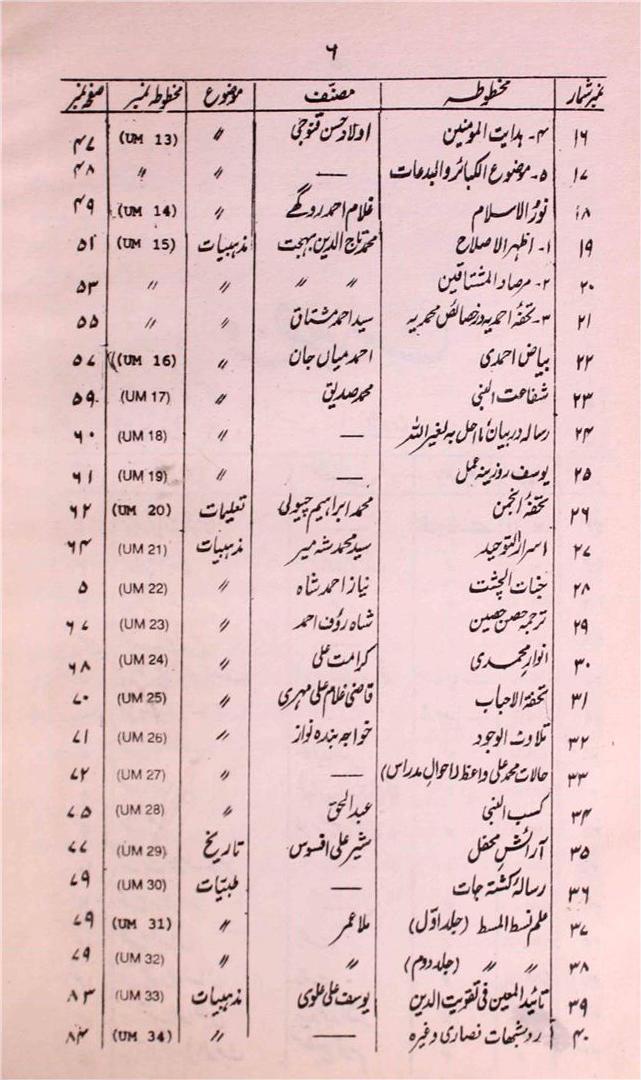 ۶
نمبر شمار مخطوطہ مصنّف موضوع مخطوطہ نمبر صفحہ نمبر
۱۶ ۴۔ ہدایت المؤمنین اولاد حسن قنوجی 〃 (UM 13) ۴۷
۱۷ ۵۔ موضوع الکبائر والبدعات — 〃 〃 ۴۸
۱۸ نورُ الاسلام غلام احمد روگھے 〃 (UM 14) ۴۹
۱۹ ۱۔ اظہر الاصلاح محمد تاج الدین بہجت مذہبیات (UM 15) ۵۱
۲۰ ۲۔ مرصاد المشتاقین 〃 〃 〃 〃 ۵۳
۲۱ ۳۔ تحفہ احمدیہ در خصائص محمدیہ سید احمد مشتاق 〃 〃 ۵۵
۲۲ بیاض احمدی احمد میاں جان 〃 (UM 16) ۵۷
۲۳ شفاعت النبی محمد صدیق 〃 (UM 17) ۵۹
۲۴ رسالہ در بیان ما احل بہ لغیر اللہ — 〃 (UM 18) ۶۰
۲۵ یوسف روزینہ عمل — 〃 (UM 19) ۶۱
۲۶ تحفۂ انجمن محمد ابراہیم چیولی تعلیمات (UM 20) ۶۲
۲۷ اسرار التوحید سید محمد شہ میر مذہبیات (UM 21) ۶۴
۲۸ جنات الچشت نیاز احمد شاہ 〃 (UM 22) ۵
۲۹ ترجمہ حصن حصین شاہ رؤف احمد 〃 (UM 23) ۶۷
۳۰ انوارِ محمدی کرامت علی 〃 (UM 24) ۶۸
۳۱ تحفۃ الاحباب قاضی غلام علی مہری 〃 (UM 25) ۷۰
۳۲ تلاوت الوجود خواجہ بندہ نواز 〃 (UM 26) ۷۱
۳۳ حالات محمد علی واعظ (احوالِ مدراس) — 〃 (UM 27) ۷۲
۳۴ کسب النبی عبدالحق 〃 (UM 28) ۷۵
۳۵ آرائشِ محفل شیر علی افسوس تاریخ (UM 29) ۷۷
۳۶ رسالۂ کشتہ جات — طبیّات (UM 30) ۷۹
۳۷ علم نسط المسط (جلد اوّل) ملا عمر 〃 (UM 31) ۷۹
۳۸ 〃 〃 (جلد دوم) 〃 〃 (UM 32) ۷۹
۳۹ تائید المعین فی تقویت الدین یوسف علی علوی مذہبیات (UM 33) ۸۳
۴۰ رد شبہات نصاریٰ وغیرہ — 〃 (UM 34) ۸۴